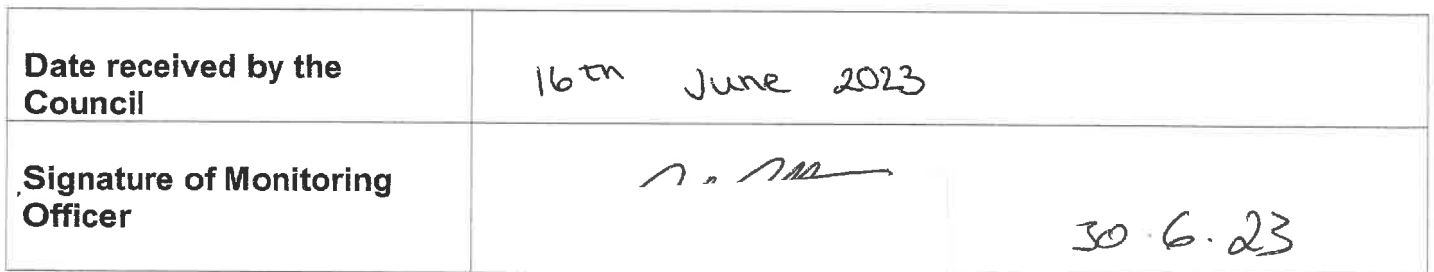 Date received by the
Council
16th June 2023
Signature of Monitoring
Officer
30.6.23